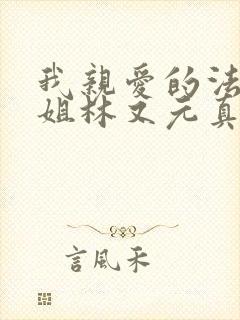 我親愛的法
姐林文元真
言風禾